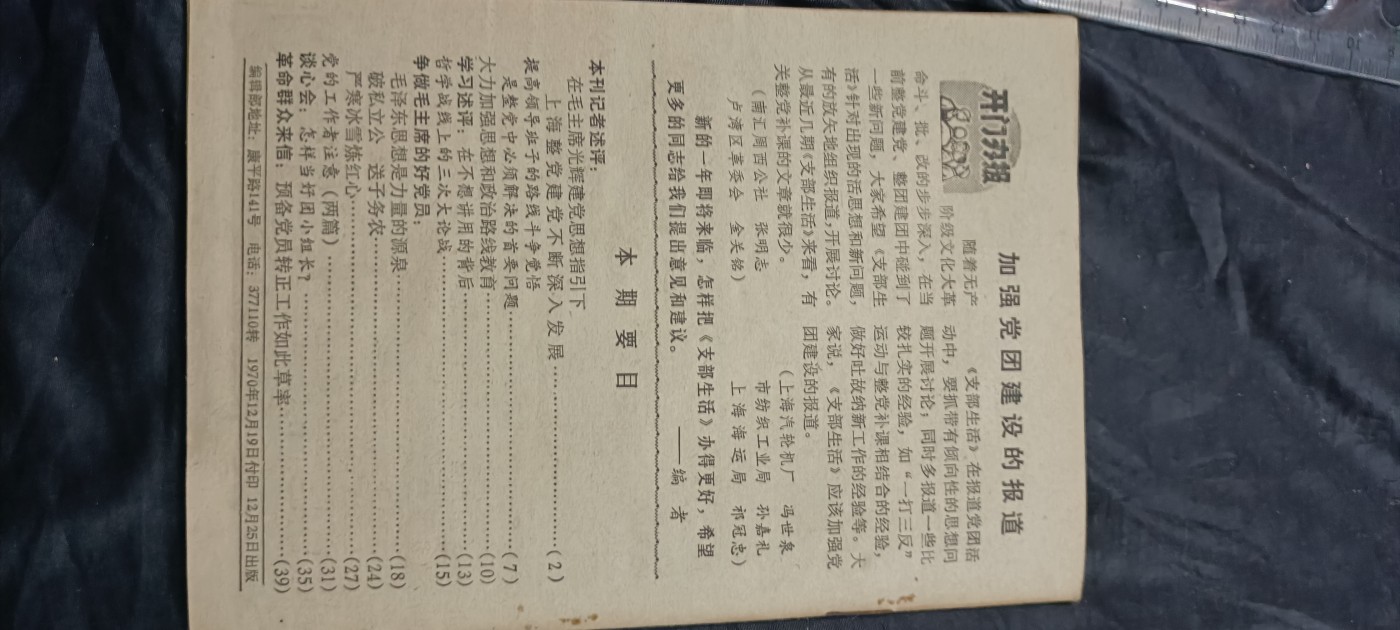 开门办报
加强党团建设的报道
随着无产
阶级文化大革
命斗、批、改的步步深入，在当
前整党建党、整团建团中碰到了
一些新问题，大家希望《支部生
活》针对出现的活思想和新问题，
有的放矢地组织报道，开展讨论。
从最近几期《支部生活》来看，有
关整党补课的文章就很少。
（南汇周西公社　张明志
卢湾区革委会　金关铭）
《支部生活》在报道党团活
动中，要抓带有倾向性的思想问
题开展讨论；同时多报道一些比
较扎实的经验，如“一打三反”
运动与整党补课相结合的经验，
做好吐故纳新工作的经验等。大
家说，《支部生活》应该加强党
团建设的报道。
（上海汽轮机厂　冯世泉
市纺织工业局　孙嘉礼
上海海运局　祁冠忠）
新的一年即将来临，怎样把《支部生活》办得更好，希望
更多的同志给我们提出意见和建议。　——编　者
本期要目
本刊记者述评：
在毛主席光辉建党思想指引下
上海整党建党不断深入发展……（2）
提高领导班子的路线斗争觉悟
是整党中必须解决的首要问题……（7）
大力加强思想和政治路线教育……（10）
学习述评：在不想讲用的背后……（13）
哲学战线上的三次大论战……（15）
争做毛主席的好党员：
毛泽东思想是力量的源泉……（18）
破私立公　送子务农……（24）
严寒冰雪炼红心……（27）
党的工作者注意（两篇）……（31）
谈心会：怎样当好团小组长？……（35）
革命群众来信：预备党员转正工作如此草率……（39）
编辑部地址：康平路141号　电话：377110转　1970年12月19日付印　12月25日出版